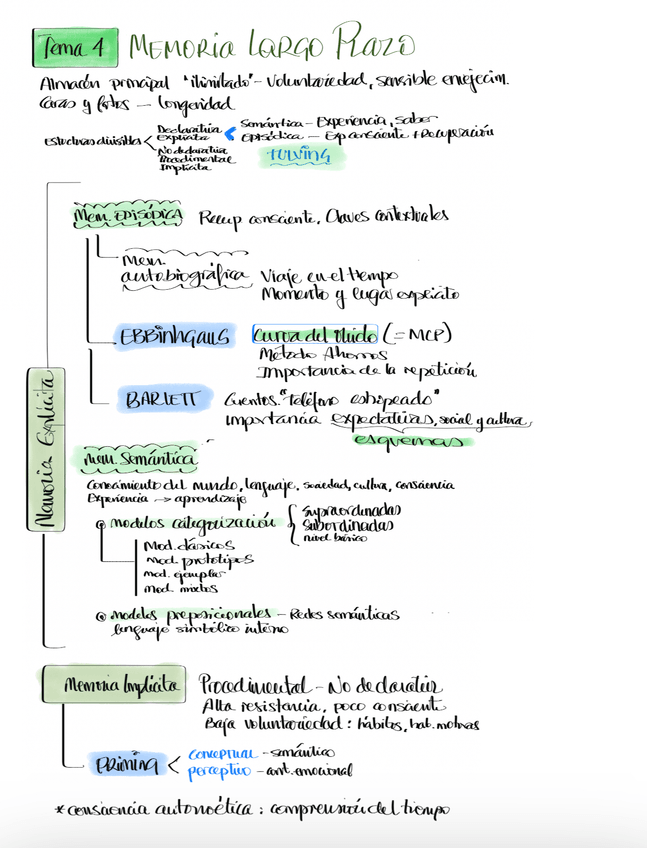 Tema 4 MEMORIA LARGO PLAZO
Almacén principal "ilimitado" - Voluntariedad, sensible envejecim.
Caras y fotos — longevidad
Estructuras divisibles < Declarativa Explícita < Semántica - Experiencia, saber
Episódica - Exp consciente + Recuperación
No declarativa
Procedimental
Implícita
TULVING
Memoria Explícita
Mem. EPISÓDICA Recup consciente, Claves contextuales
Mem.
autobiográfica Viaje en el tiempo
Momento y lugar explícito
EBBINHGAUS Curva del Olvido (:= MCP)
Método Ahorros
Importancia de la repetición
BARLETT Cuentos. "Teléfono estropeado"
Importancia expectativas, social y cultura,
esquemas
Mem. Semántica
Conocimiento del mundo, lenguaje, sociedad, cultura, consciencia
Experiencia → aprendizaje
modelos categorización { Supraordinadas
Subordinadas
nivel básico
Mod. clásicos
Mod. prototipos
mod. ejemplar
Mod. mixtos
Modelos preposicionales - Redes semánticas
lenguaje simbólico interno
Memoria Implícita Procedimental - No declarativ
Alta resistencia, poco consciente
Baja voluntariedad : hábitos, hab. motoras
PRIMING < conceptual - semántico
perceptivo - cont. emocional
* consciencia autonoética : comprensión del tiempo